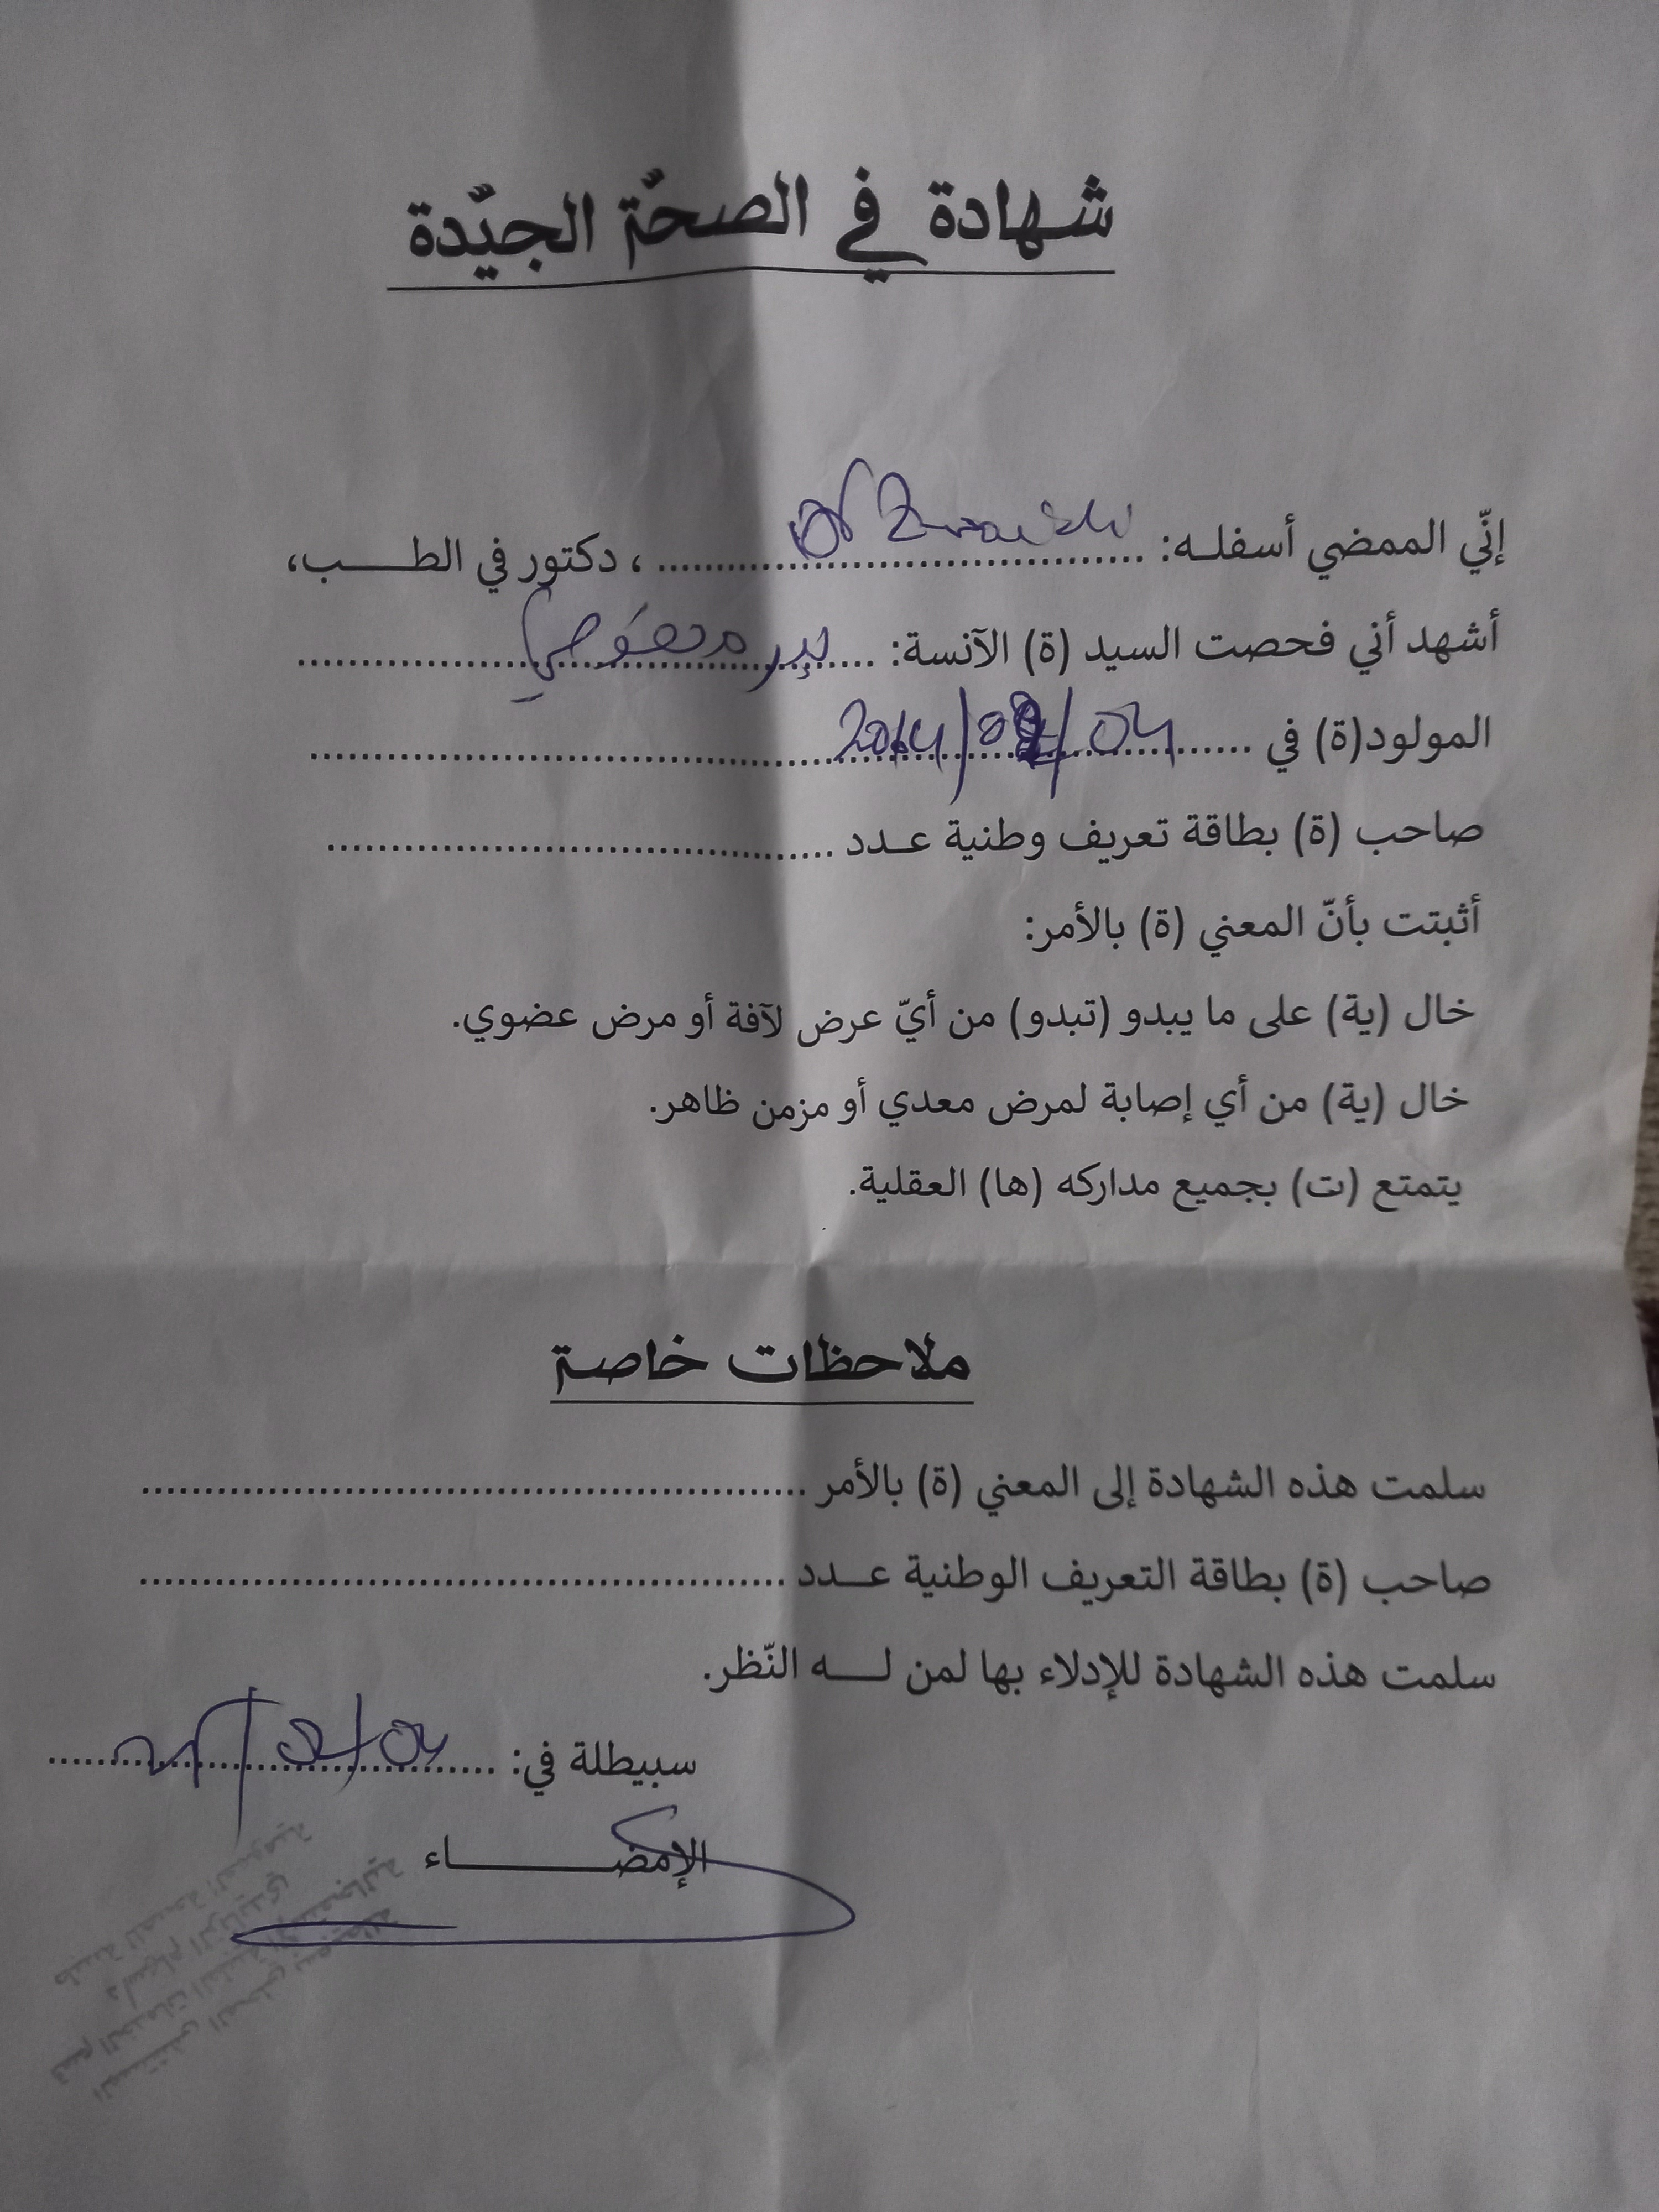 شهادة في الصحّة الجيّدة
إنّي الممضي أسفله: Dr ........ ، دكتور في الطب،
أشهد أني فحصت السيد (ة) الآنسة: ........
المولود(ة) في 04/ /2014
صاحب (ة) بطاقة تعريف وطنية عدد ........
أثبتت بأنّ المعني (ة) بالأمر:
خال (ية) على ما يبدو (تبدو) من أيّ عرض لآفة أو مرض عضوي.
خال (ية) من أي إصابة لمرض معدي أو مزمن ظاهر.
يتمتع (ت) بجميع مداركه (ها) العقلية.
ملاحظات خاصة
سلمت هذه الشهادة إلى المعني (ة) بالأمر ........
صاحب (ة) بطاقة التعريف الوطنية عدد ........
سلمت هذه الشهادة للإدلاء بها لمن له النّظر.
سبيطلة في: ........
الإمضاء